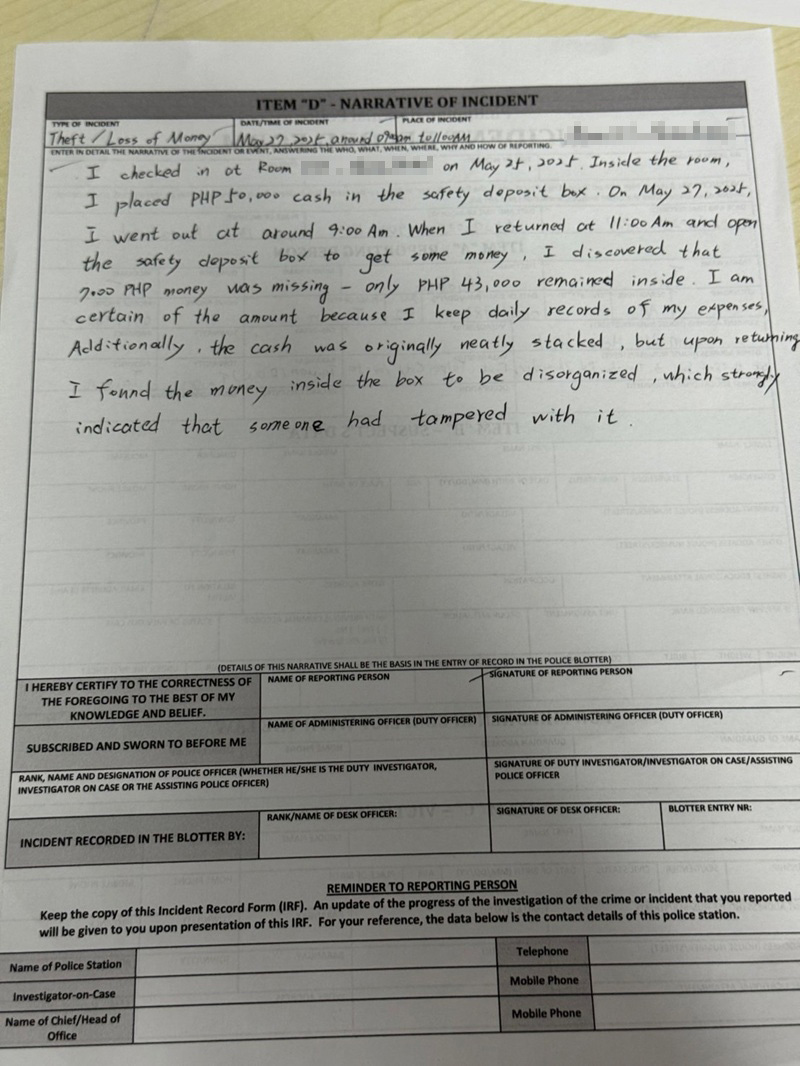 ITEM "D" - NARRATIVE OF INCIDENT
TYPE OF INCIDENT
DATE/TIME OF INCIDENT
PLACE OF INCIDENT
Theft / Loss of Money
May 27, 2025, around
ENTER IN DETAIL THE NARRATIVE OF THE INCIDENT OR EVENT, ANSWERING THE WHO, WHAT, WHEN, WHERE, WHY AND HOW OF REPORTING.
I checked in at Room on May 25, 2025. Inside the room,
I placed PHP 50,000 cash in the safety deposit box. On May 27, 2025,
I went out at around 9:00 Am. When I returned at 11:00 Am and open
the safety deposit box to get some money, I discovered that
PHP money was missing – only PHP 43,000 remained inside. I am
certain of the amount because I keep daily records of my expenses,
Additionally, the cash was originally neatly stacked, but upon returning
I found the money inside the box to be disorganized, which strongly
indicated that someone had tampered with it.
(DETAILS OF THIS NARRATIVE SHALL BE THE BASIS IN THE ENTRY OF RECORD IN THE POLICE BLOTTER)
I HEREBY CERTIFY TO THE CORRECTNESS OF
THE FOREGOING TO THE BEST OF MY
KNOWLEDGE AND BELIEF.
NAME OF REPORTING PERSON
SIGNATURE OF REPORTING PERSON
SUBSCRIBED AND SWORN TO BEFORE ME
NAME OF ADMINISTERING OFFICER (DUTY OFFICER)
SIGNATURE OF ADMINISTERING OFFICER (DUTY OFFICER)
RANK, NAME AND DESIGNATION OF POLICE OFFICER (WHETHER HE/SHE IS THE DUTY INVESTIGATOR,
INVESTIGATOR ON CASE OR THE ASSISTING POLICE OFFICER)
SIGNATURE OF DUTY INVESTIGATOR/INVESTIGATOR ON CASE/ASSISTING
POLICE OFFICER
INCIDENT RECORDED IN THE BLOTTER BY:
RANK/NAME OF DESK OFFICER:
SIGNATURE OF DESK OFFICER:
BLOTTER ENTRY NR:
REMINDER TO REPORTING PERSON
Keep the copy of this Incident Record Form (IRF). An update of the progress of the investigation of the crime or incident that you reported
will be given to you upon presentation of this IRF. For your reference, the data below is the contact details of this police station.
Name of Police Station
Telephone
Investigator-on-Case
Mobile Phone
Name of Chief/Head of
Office
Mobile Phone